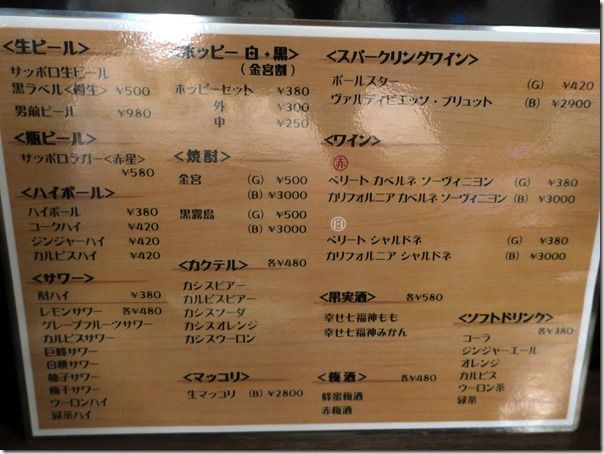 <生ビール>
サッポロ生ビール
黒ラベル<樽生> ¥500
男前ビール ¥980
<瓶ビール>
サッポロラガー<赤星>
¥580
<ハイボール>
ハイボール ¥380
コークハイ ¥420
ジンジャーハイ ¥420
カルピスハイ ¥420
<サワー>
酎ハイ ¥380
レモンサワー 各¥480
グレープフルーツサワー
カルピスサワー
巨峰サワー
白桃サワー
柚子サワー
梅干サワー
ウーロンハイ
緑茶ハイ
<ホッピー 白・黒>
(金宮割)
ホッピーセット ¥380
外 ¥300
中 ¥250
<焼酎>
金宮 (G) ¥500
(B) ¥3000
黒霧島 (G) ¥500
(B) ¥3000
<カクテル> 各¥480
カシスビアー
カルピスビアー
カシスソーダ
カシスオレンジ
カシスウーロン
<マッコリ>
生マッコリ (B) ¥2800
<スパークリングワイン>
ポールスター (G) ¥420
ヴァルディビエッソ・ブリュット (B) ¥2900
<ワイン>
赤
ペリート カベルネ ソーヴィニヨン (G) ¥380
カリフォルニア カベルネ ソーヴィニヨン (B) ¥3000
白
ペリート シャルドネ (G) ¥380
カリフォルニア シャルドネ (B) ¥3000
<果実酒> 各¥580
幸せ七福神もも
幸せ七福神みかん
<梅酒> 各¥480
蜂蜜梅酒
赤梅酒
<ソフトドリンク>
各¥380
コーラ
ジンジャーエール
オレンジ
カルピス
ウーロン茶
緑茶